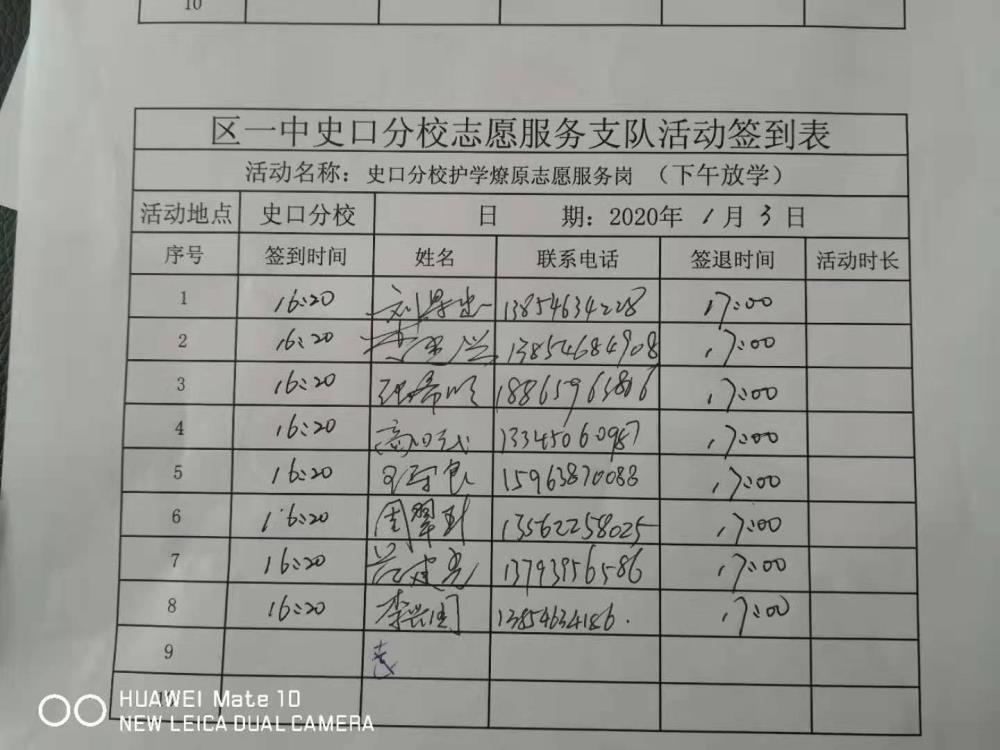 10
区一中史口分校志愿服务支队活动签到表
活动名称：史口分校护学燎原志愿服务岗 （下午放学）
活动地点 史口分校 日 期：2020年 1 月 3 日
序号 签到时间 姓名 联系电话 签退时间 活动时长
1 16:20 13854634228 17:00
2 16:20 13854684908 17:00
3 16:20 17:00
4 16:20 13345060987 17:00
5 16:20 15963870088 17:00
6 16:20 13562258025 17:00
7 16:20 13793956586 17:00
8 16:20 李兴国 13854634186. 17:00
9
HUAWEI Mate 10
NEW LEICA DUAL CAMERA